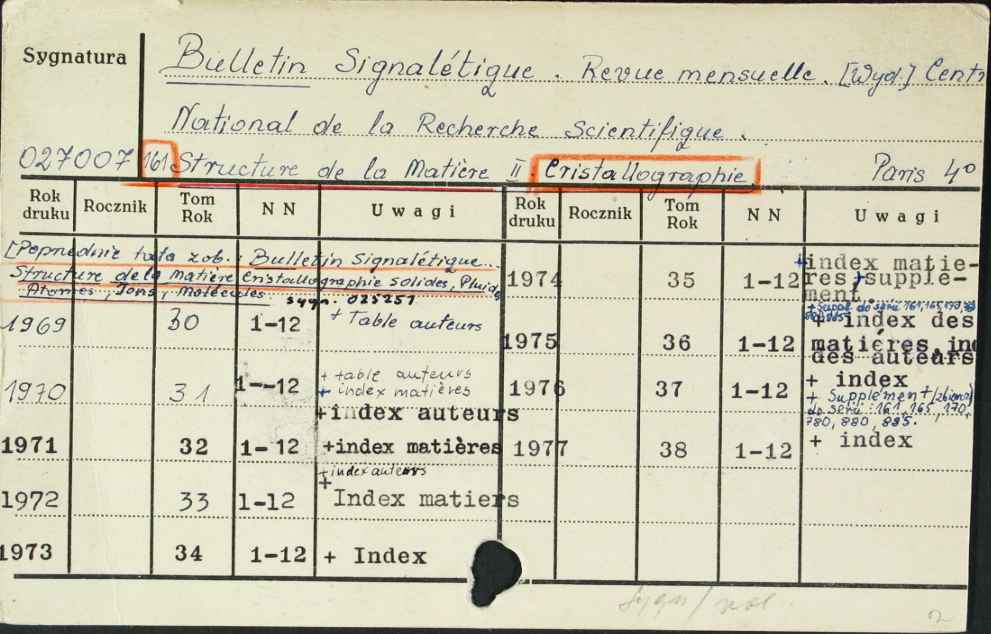 Sygnatura
Bulletin Signalétique. Revue mensuelle. [Wyd.] Centr
National de la Recherche Scientifique.
027007 161 Structure de la Matière II Cristallographie Paris 4°
Rok druku Rocznik Tom Rok N N Uwagi Rok druku Rocznik Tom Rok N N Uwagi
[Poprzednie tuta zob.: Bulletin Signalétique.
Structure de la matière Cristallographie Solides, Fluid,
Atomes, Ions, Molécules sygn. 025251
1969 30 1-12 + Table auteurs
1970 31 1--12 + table auteurs
+ index matières
+index auteurs
1971 32 1-12 +index matières
+index auteurs
1972 33 1-12 + Index matiers
1973 34 1-12 + Index
1974 35 1-12 +index matie-
res +supple-
ment.
+ Suppl. do serii 161, 165, 170,
1975 36 1-12 + index des
matiéres, ind
des auteurs
1976 37 1-12 + index
+ Supplement
do serii: 161, 165, 170,
780, 880, 885.
1977 38 1-12 + index
2